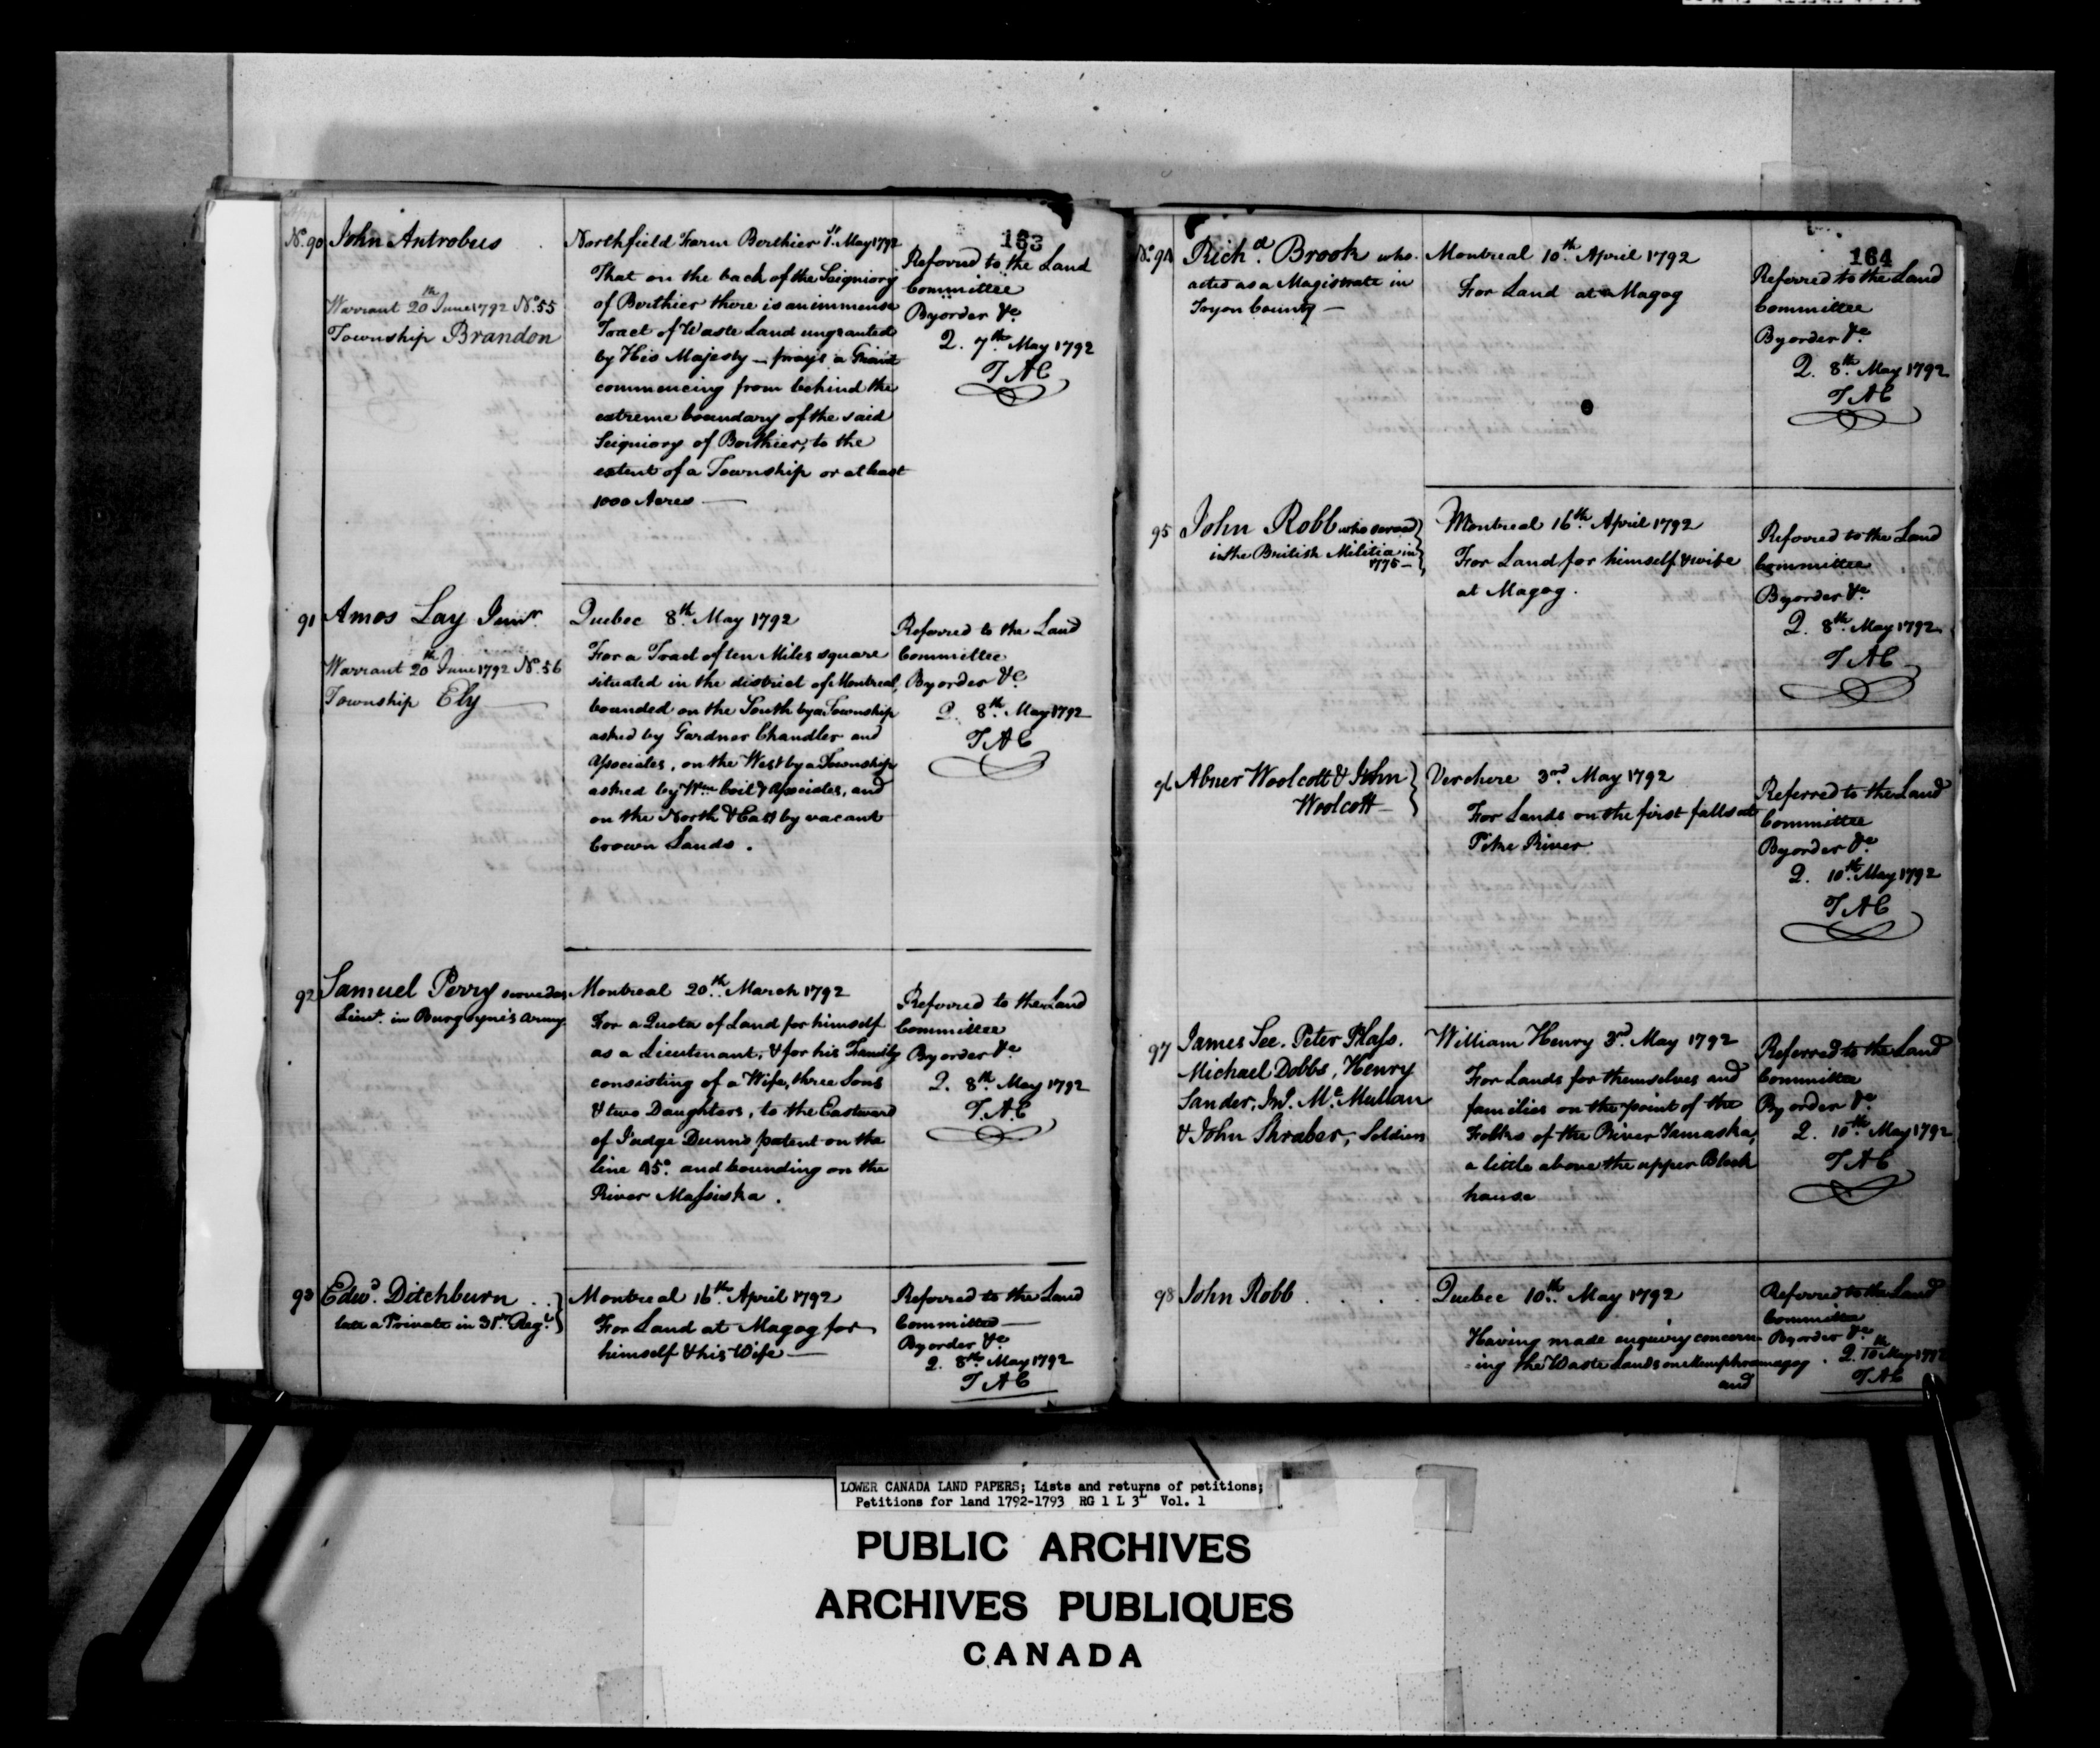 163
No. 90 John Antrobus
Warrant 20th June 1792 No. 55
Township Brandon
Northfield Farm Berthier 1st May 1792
That on the back of the Seigniory
of Berthier there is an immense
Tract of Waste Land ungranted
by His Majesty — prays a Grant
commencing from behind the
extreme boundary of the said
Seigniory of Berthier, to the
extent of a Township or at least
1000 Acres —
Referred to the Land
Committee
By order &c.
Q. 7th May 1792
T A C
91 Amos Lay Junr.
Warrant 20th June 1792 No. 56
Township Ely
Quebec 8th May 1792
For a Tract of ten Miles square
situated in the district of Montreal,
bounded on the South by a Township
asked by Gardner Chandler and
Associates, on the West by a Township
asked by Wm. & Associates, and
on the North & East by vacant
Crown Lands.
Referred to the Land
Committee
By order &c.
Q. 8th May 1792
T A C
92 Samuel Perry served as
Lieut. in Burgoyne's Army
Montreal 20th March 1792
For a Quota of Land for himself
as a Lieutenant, & for his Family
consisting of a Wife, three Sons
& two Daughters, to the Eastward
of Judge Dunn's patent on the
line 45° and bounding on the
River Massiska.
Referred to the Land
Committee
By order &c.
Q. 8th May 1792
T. A C
93 Edwd. Ditchburn
late a Private in 31st Regt.
Montreal 16th April 1792
For Land at Magog for
himself & his Wife —
Referred to the Land
Committee —
By order &c.
Q. 8th May 1792
T A C
164
No. 94 Richd. Brook who
acted as a Magistrate in
Tryon County —
Montreal 10th April 1792
For Land at Magog
Referred to the Land
Committee
By order &c.
Q. 8th May 1792
T A C
95 John Robb who served
in the British Militia in
1775 —
Montreal 16th April 1792
For Land for himself & wife
at Magog.
Referred to the Land
Committee
By order &c.
Q. 8th May 1792
T A C
96 Abner Woolcott & John
Woolcott —
Verchere 3rd May 1792
For Lands on the first falls at
Pike River
Referred to the Land
Committee
By order &c.
Q. 10th May 1792
T A C
97 James See. Peter
Michael Dobbs, Henry
Sander, Jno. McMullan
& John Shraber, Soldiers
William Henry 3rd May 1792
For Lands for themselves and
families on the point of the
Forks of the River Yamaska,
a little above the upper Block
house
Referred to the Land
Committee
By order &c.
Q. 10th May 1792
T A C
98 John Robb
Quebec 10th May 1792
Having made enquiry concern-
ing the Waste Lands on Memphremagog
and
Referred to the Land
Committee
By order &c.
Q. 10th May 1792
T A C
LOWER CANADA LAND PAPERS; Lists and returns of petitions;
Petitions for land 1792-1793 RG 1 L 3L Vol. 1
PUBLIC ARCHIVES
ARCHIVES PUBLIQUES
CANADA